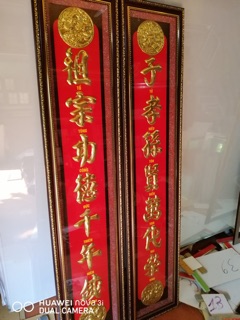 祖宗功德千年盛
子孝孫賢萬代榮
13
HUAWEI nova 3i
DUAL CAMERA